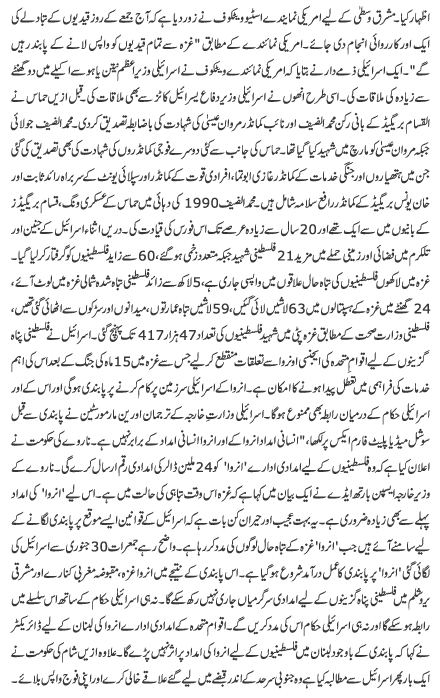 اظہار کیا۔ مشرق وسطیٰ کے لیے امریکی نمایندے اسٹیو ویٹکوف نے زور دیا ہے کہ آج جمعے کے روز قیدیوں کے تبادلے کی
ایک اور کارروائی انجام دی جائے۔ امریکی نمائندے ویٹکوف کے مطابق "غزہ سے تمام قیدیوں کو واپس لانے کے پابند رہیں
گے"۔ ایک اسرائیلی ذمے دار نے بتایا کہ امریکی نمائندے ویٹکوف نے اسرائیلی وزیراعظم نیتن یاہو سے اکیلے میں دو گھنٹے
سے زیادہ کی ملاقات کی۔ اسی طرح انھوں نے اسرائیلی وزیر دفاع یسرائیل کاتز سے بھی ملاقات کی۔ قبل ازیں حماس نے
القسام بریگیڈ کے بانی رکن محمد الضیف اور نائب کمانڈر مروان عیسیٰ کی شہادت کی باضابطہ تصدیق کر دی۔ محمد الضیف جولائی
جبکہ مروان عیسیٰ کو مارچ میں شہید کیا گیا تھا۔ حماس کی جانب سے کئی دوسرے فوجی کمانڈروں کی شہادت کی بھی تصدیق کی گئی
جن میں ہتھیاروں اور جنگی خدمات کے کمانڈر غازی ابوتما، افرادی قوت کے کمانڈر اور سپلائی یونٹ کے سربراہ رائد ثابت اور
خان یونس بریگیڈ کے کمانڈر رافع سلامہ شامل ہیں۔ محمد الضیف 1990 کی دہائی میں حماس کے عسکری ونگ، قسام بریگیڈز
کے بانیوں میں سے تھے اور 20 سال سے زیادہ عرصے تک اس فورس کی قیادت کی۔ دریں اثناء اسرائیل کے جنین اور
تلکرم میں فضائی اور زمینی حملے میں مزید 21 فلسطینی شہید جبکہ متعدد زخمی ہو گئے، 60 سے زاید فلسطینیوں کو گرفتار کر لیا گیا۔
غزہ میں لاکھوں فلسطینیوں کی تباہ حال علاقوں میں واپسی جاری ہے، 5 لاکھ سے زائد فلسطینی تباہ شدہ شمالی غزہ میں لوٹ آئے،
24 گھنٹے میں غزہ کے ہسپتالوں میں 63 لاشیں لائی گئیں، 59 لاشیں تباہ عمارتوں، میدانوں اور سڑکوں سے اٹھائی گئی تھیں،
فلسطینی وزارت صحت کے مطابق غزہ پٹی میں شہید فلسطینیوں کی تعداد 47 ہزار 417 تک پہنچ گئی۔ اسرائیل نے فلسطینی پناہ
گزینوں کے لیے اقوام متحدہ کی ایجنسی اونروا سے تعلقات منقطع کر لیے جس سے غزہ میں 15 ماہ کی جنگ کے بعد اس کی اہم
خدمات کی فراہمی میں تعطل پیدا ہونے کا امکان ہے۔ انروا کے اسرائیلی سرزمین پر کام کرنے پر پابندی ہو گی اور اس کے اور
اسرائیلی حکام کے درمیان رابطہ بھی ممنوع ہو گا۔ اسرائیلی وزارت خارجہ کے ترجمان اورین مارمورسٹین نے پابندی سے قبل
سوشل میڈیا پلیٹ فارم ایکس پر لکھا، "انسانی امداد انروا کے اور انروا انسانی امداد کے برابر نہیں ہے۔ ناروے کی حکومت نے
اعلان کیا ہے کہ وہ فلسطینیوں کے لیے امدادی ادارے 'انروا' کو 24 ملین ڈالر کی امدادی رقم ارسال کرے گی۔ ناروے کے
وزیر خارجہ ایسپن بارتھ ایڈے نے ایک بیان میں کہا ہے کہ غزہ اس وقت تباہی کی حالت میں ہے۔ اس لیے 'انروا' کی امداد
پہلے سے بھی زیادہ ضروری ہے۔ یہ بہت عجیب اور حیران کن بات ہے کہ اسرائیل کے قوانین ایسے موقع پر پابندی لگانے کے
لیے سامنے آئے ہیں جب 'انروا' غزہ کے تباہ حال لوگوں کی مدد کر رہا ہے۔ واضح رہے جمعرات 30 جنوری سے اسرائیل کی
لگائی گئی 'انروا' پر پابندی کا عمل درآمد شروع ہو گیا ہے۔ اس پابندی کے نتیجے میں انروا غزہ، مقبوضہ مغربی کنارے اور مشرقی
یروشلم میں فلسطینی پناہ گزینوں کے لیے امدادی سرگرمیاں جاری نہیں رکھ سکے گا۔ نہ ہی اسرائیلی حکام کے ساتھ اس سلسلے میں
رابطہ کر سکے گا نہ ہی اسرائیلی حکام اس کی مدد کریں گے۔ اقوام متحدہ کے امدادی ادارے انروا کی لبنان کے لیے ڈائریکٹر
نے کہا کہ پابندی کے باوجود لبنان میں فلسطینیوں کے لیے انروا کی امداد پر اثر نہیں پڑے گا۔ علاوہ ازیں شام کی حکومت نے
ایک بار پھر اسرائیل سے مطالبہ کیا ہے وہ جنوبی سرحد کے اندر قبضے میں لیے گئے علاقے خالی کرے اور اپنی فوج واپس بلائے۔